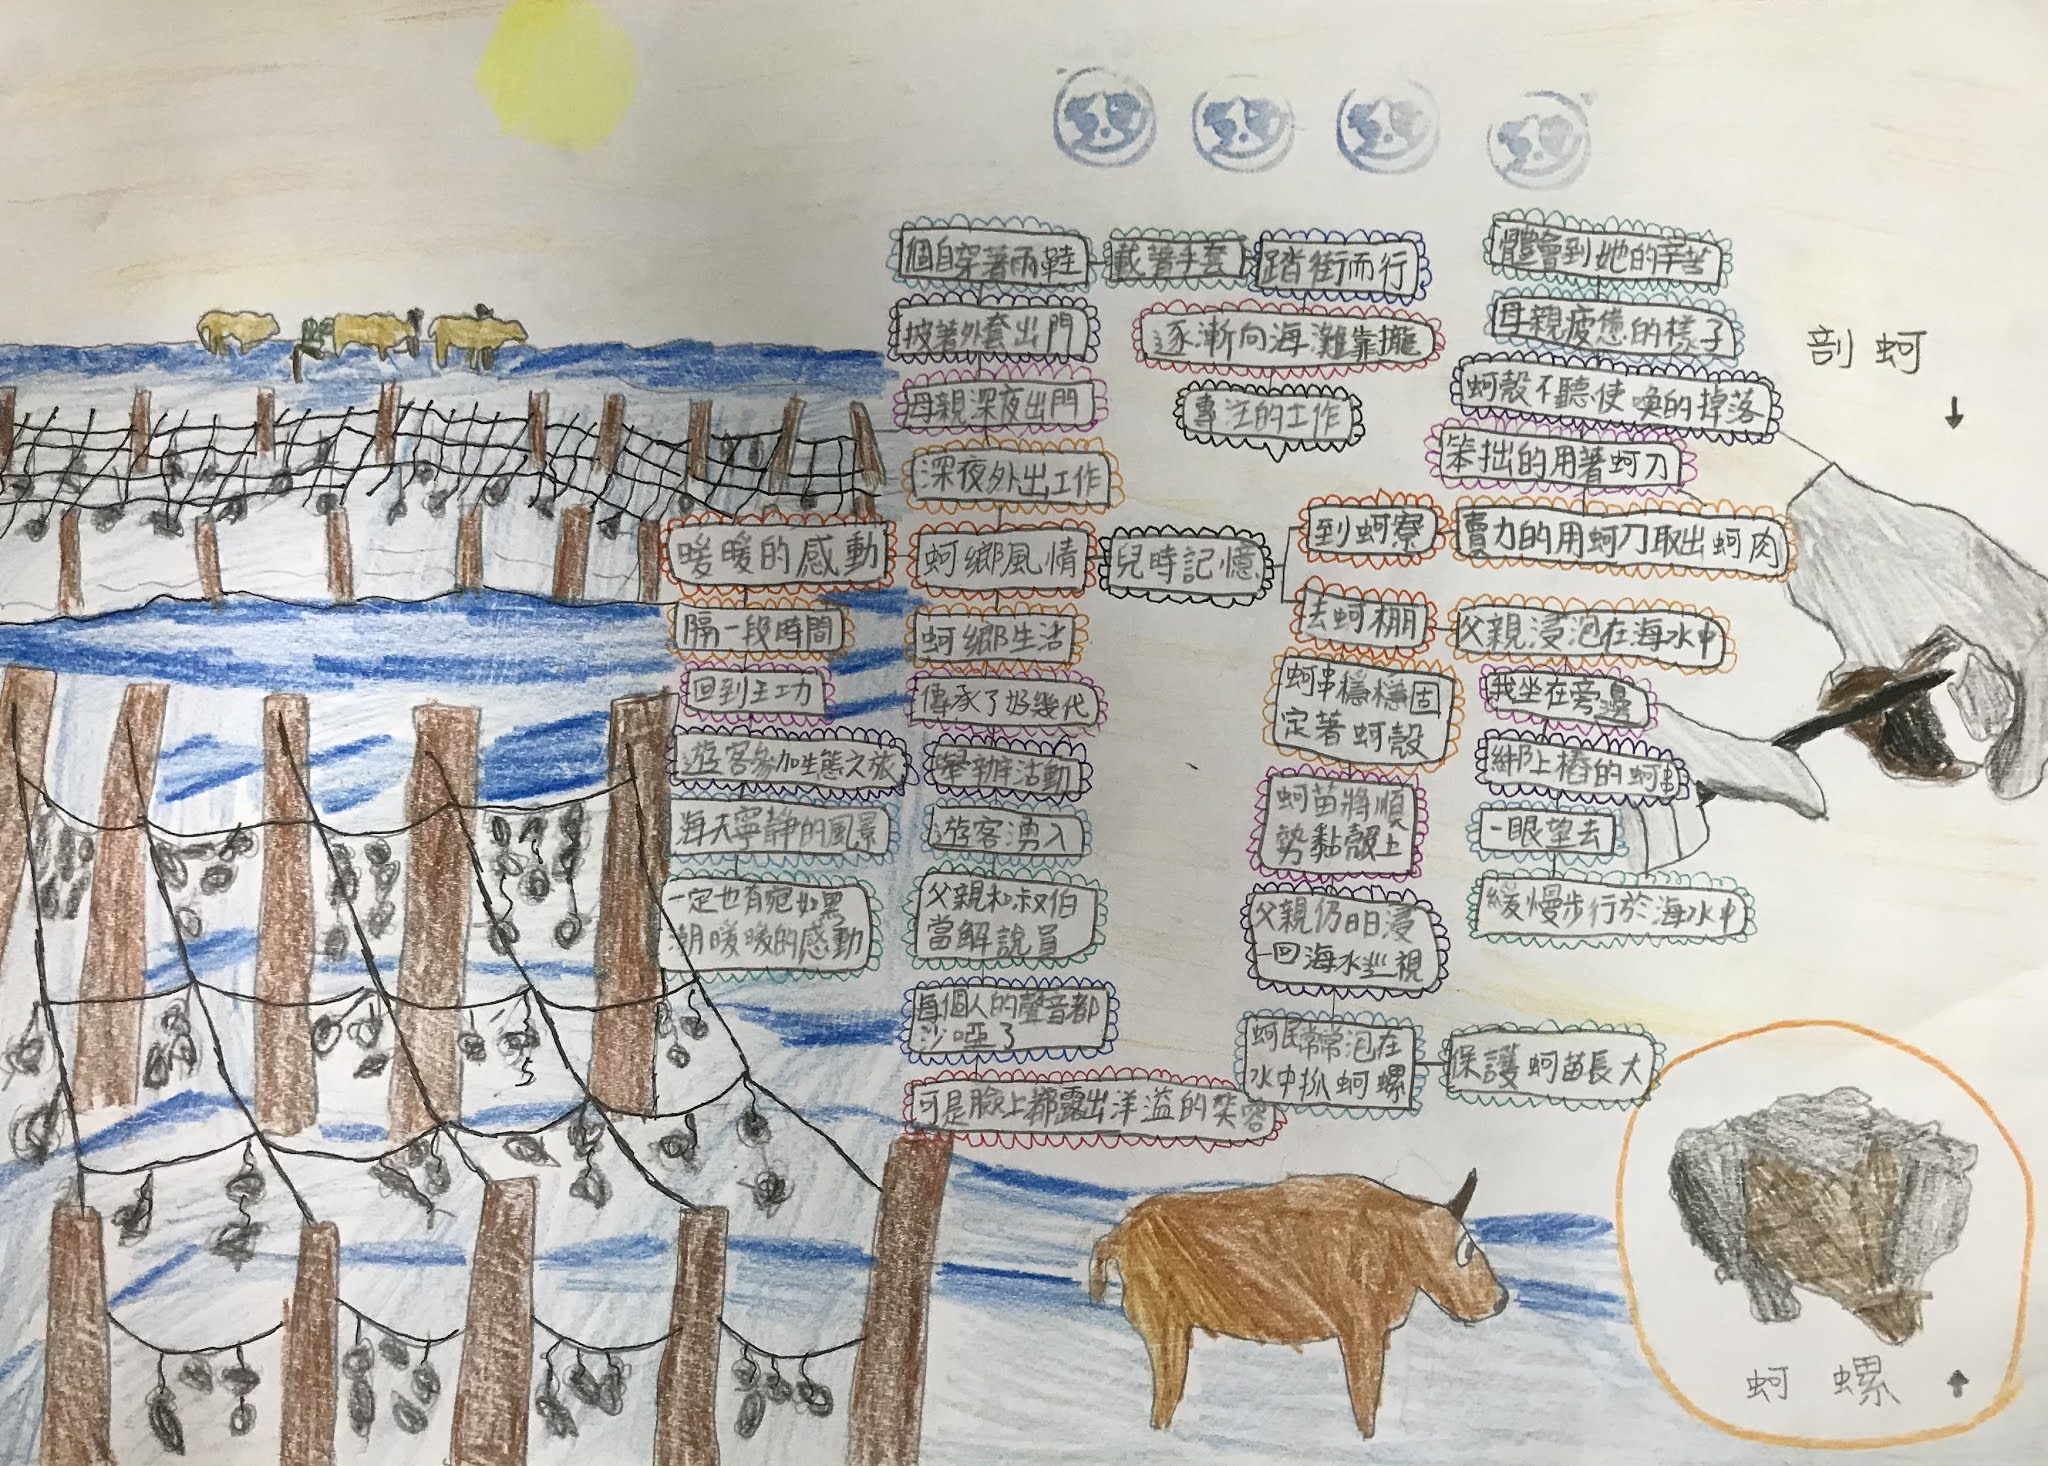 個自穿著雨鞋
戴著手套
踏街而行
披著外套出門
逐漸向海灘靠攏
母親深夜出門
專注的工作
深夜外出工作
體會到她的辛苦
母親疲憊的樣子
蚵殼不聽使喚的掉落
笨拙的用著蚵刀
剖蚵
暖暖的感動
蚵鄉風情
兒時記憶
到蚵寮
賣力的用蚵刀取出蚵肉
去蚵棚
父親浸泡在海水中
隔一段時間
回到主功
遊客參加生態之旅
海天寧靜的風景
一定也有宛如黑
潮暖暖的感動
蚵鄉生活
傳承了好幾代
舉辦活動
遊客湧入
父親和叔伯
當解說員
每個人的聲音都
沙啞了
可是臉上都露出洋溢的笑容
蚵串穩穩固
定著蚵殼
蚵苗將順
勢黏殼上
父親仍日日浸
一回海水巡視
蚵民常常泡在
水中抓蚵螺
保護蚵苗長大
我坐在旁邊
綁上樁的蚵串
一眼望去
緩慢步行於海水中
蚵螺